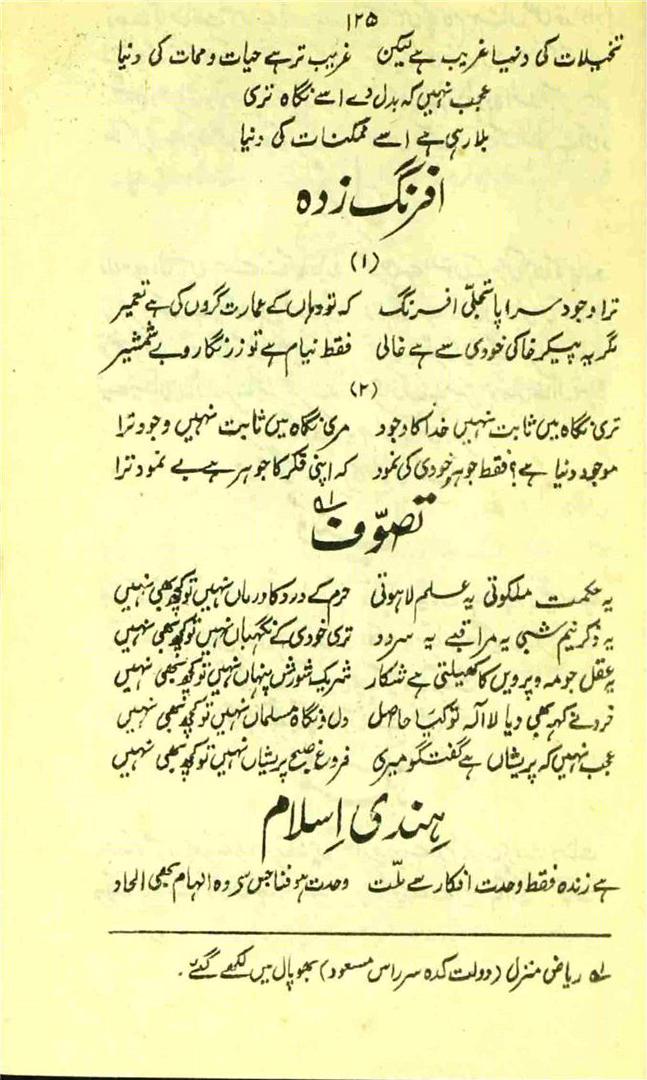 ۱۲۵
تخیلات کی دنیا غریب ہے لیکن غریب تر ہے حیات و ممات کی دنیا
عجب نہیں کہ بدل دے اسے نگاہ تری
بلا رہی ہے اسے ممکنات کی دنیا
افرنگ زدہ
(۱)
ترا وجود سراپا تجلّی افرنگ کہ تو وہاں کے عمارت گروں کی ہے تعمیر
مگر یہ پیکر خاکی خودی سے ہے خالی فقط نیام ہے تو زرنگار و بے شمشیر
(۲)
تری نگاہ میں ثابت نہیں خدا کا وجود مری نگاہ میں ثابت نہیں وجود ترا
موجود دنیا ہے؟ فقط جوہر خودی کی نمود کہ اپنی فکر کا جوہر ہے بے نمود ترا
تصوّف ؎۱
یہ حکمت ملکوتی یہ علم لاہوتی حرم کے درد کا درماں نہیں تو کچھ بھی نہیں
یہ ذکر نیم شبی یہ مراقبے یہ سرود تری خودی کے نگہباں نہیں تو کچھ بھی نہیں
یہ عقل جو مہ و پرویں کا کھیلتی ہے شکار شریک شورش پنہاں نہیں تو کچھ بھی نہیں
خرد نے کہہ بھی دیا لا الہ تو کیا حاصل دل و نگاہ مسلماں نہیں تو کچھ بھی نہیں
عجب نہیں کہ پریشاں ہے گفتگو میری فروغ صبح پریشاں نہیں تو کچھ بھی نہیں
ہندی اسلام
ہے زندہ فقط وحدت افکار سے ملّت وحدت ہو فنا جس سے وہ الہام بھی الحاد
؎۱ ریاض منزل (دولت کدہ سر راس مسعود) بھوپال میں لکھے گئے۔